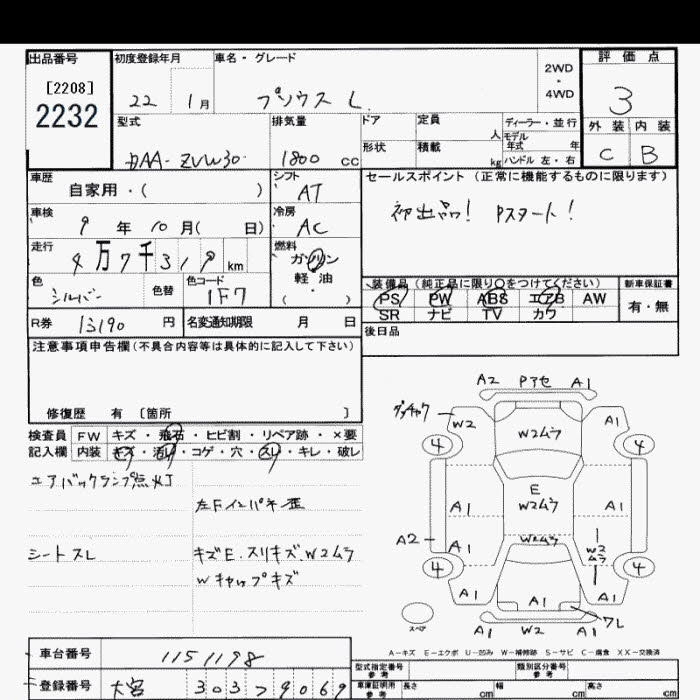 出品番号 初度登録年月 車名・グレード 2WD・4WD 評価点
[2208]
2232 22 1月 プリウス L 3
型式 排気量 ドア 定員 人 ディーラー・並行 外装 内装
DAA-ZVW30 1800 cc 形状 積載 kg モデル年式 年 ハンドル 左・右 C B
車歴 自家用・( ) シフト AT セールスポイント (正常に機能するものに限ります)
車検 9年 10月( 日) 冷房 AC 初出品! Pスタート!
走行 4万7千319km 燃料 ガソリン 軽油 ( )
色 シルバー 色替 色コード 1F7 装備品 (純正品に限り○をつけてください) 新車保証書
PS PW ABS エアB AW 有・無
R券 13190円 名変通知期限 月 日 SR ナビ TV カワ
注意事項申告欄 (不具合内容等は具体的に記入して下さい) 後日品
修復歴 有 [箇所 ]
検査員 FW キズ・飛石・ヒビ割・リペア跡・×要
記入欄 内装 キズ・汚れ・コゲ・穴・スレ・キレ・破レ
エアバックランプ点灯
左Fインパネ歪
シートスレ キズE.スリキズ.W2ムラ
Wキャップキズ
A2 Pアセ A1
W2 W2ムラ A1
4 4
E
A1 W2ムラ A1
A2 A1 W2ムラ W2ムラ
4 4
A1 A1 A1
ワレ
スペア A1 W2 A1
A-キズ E-エクボ U-凹み W-補修跡 S-サビ C-腐食 XX-交換済
車台番号 1151198 型式指定番号 参考 類別区分番号 参考
登録番号 大宮 303 ソ 9069 車庫証明用 参考 長さ cm 幅 cm 高さ cm